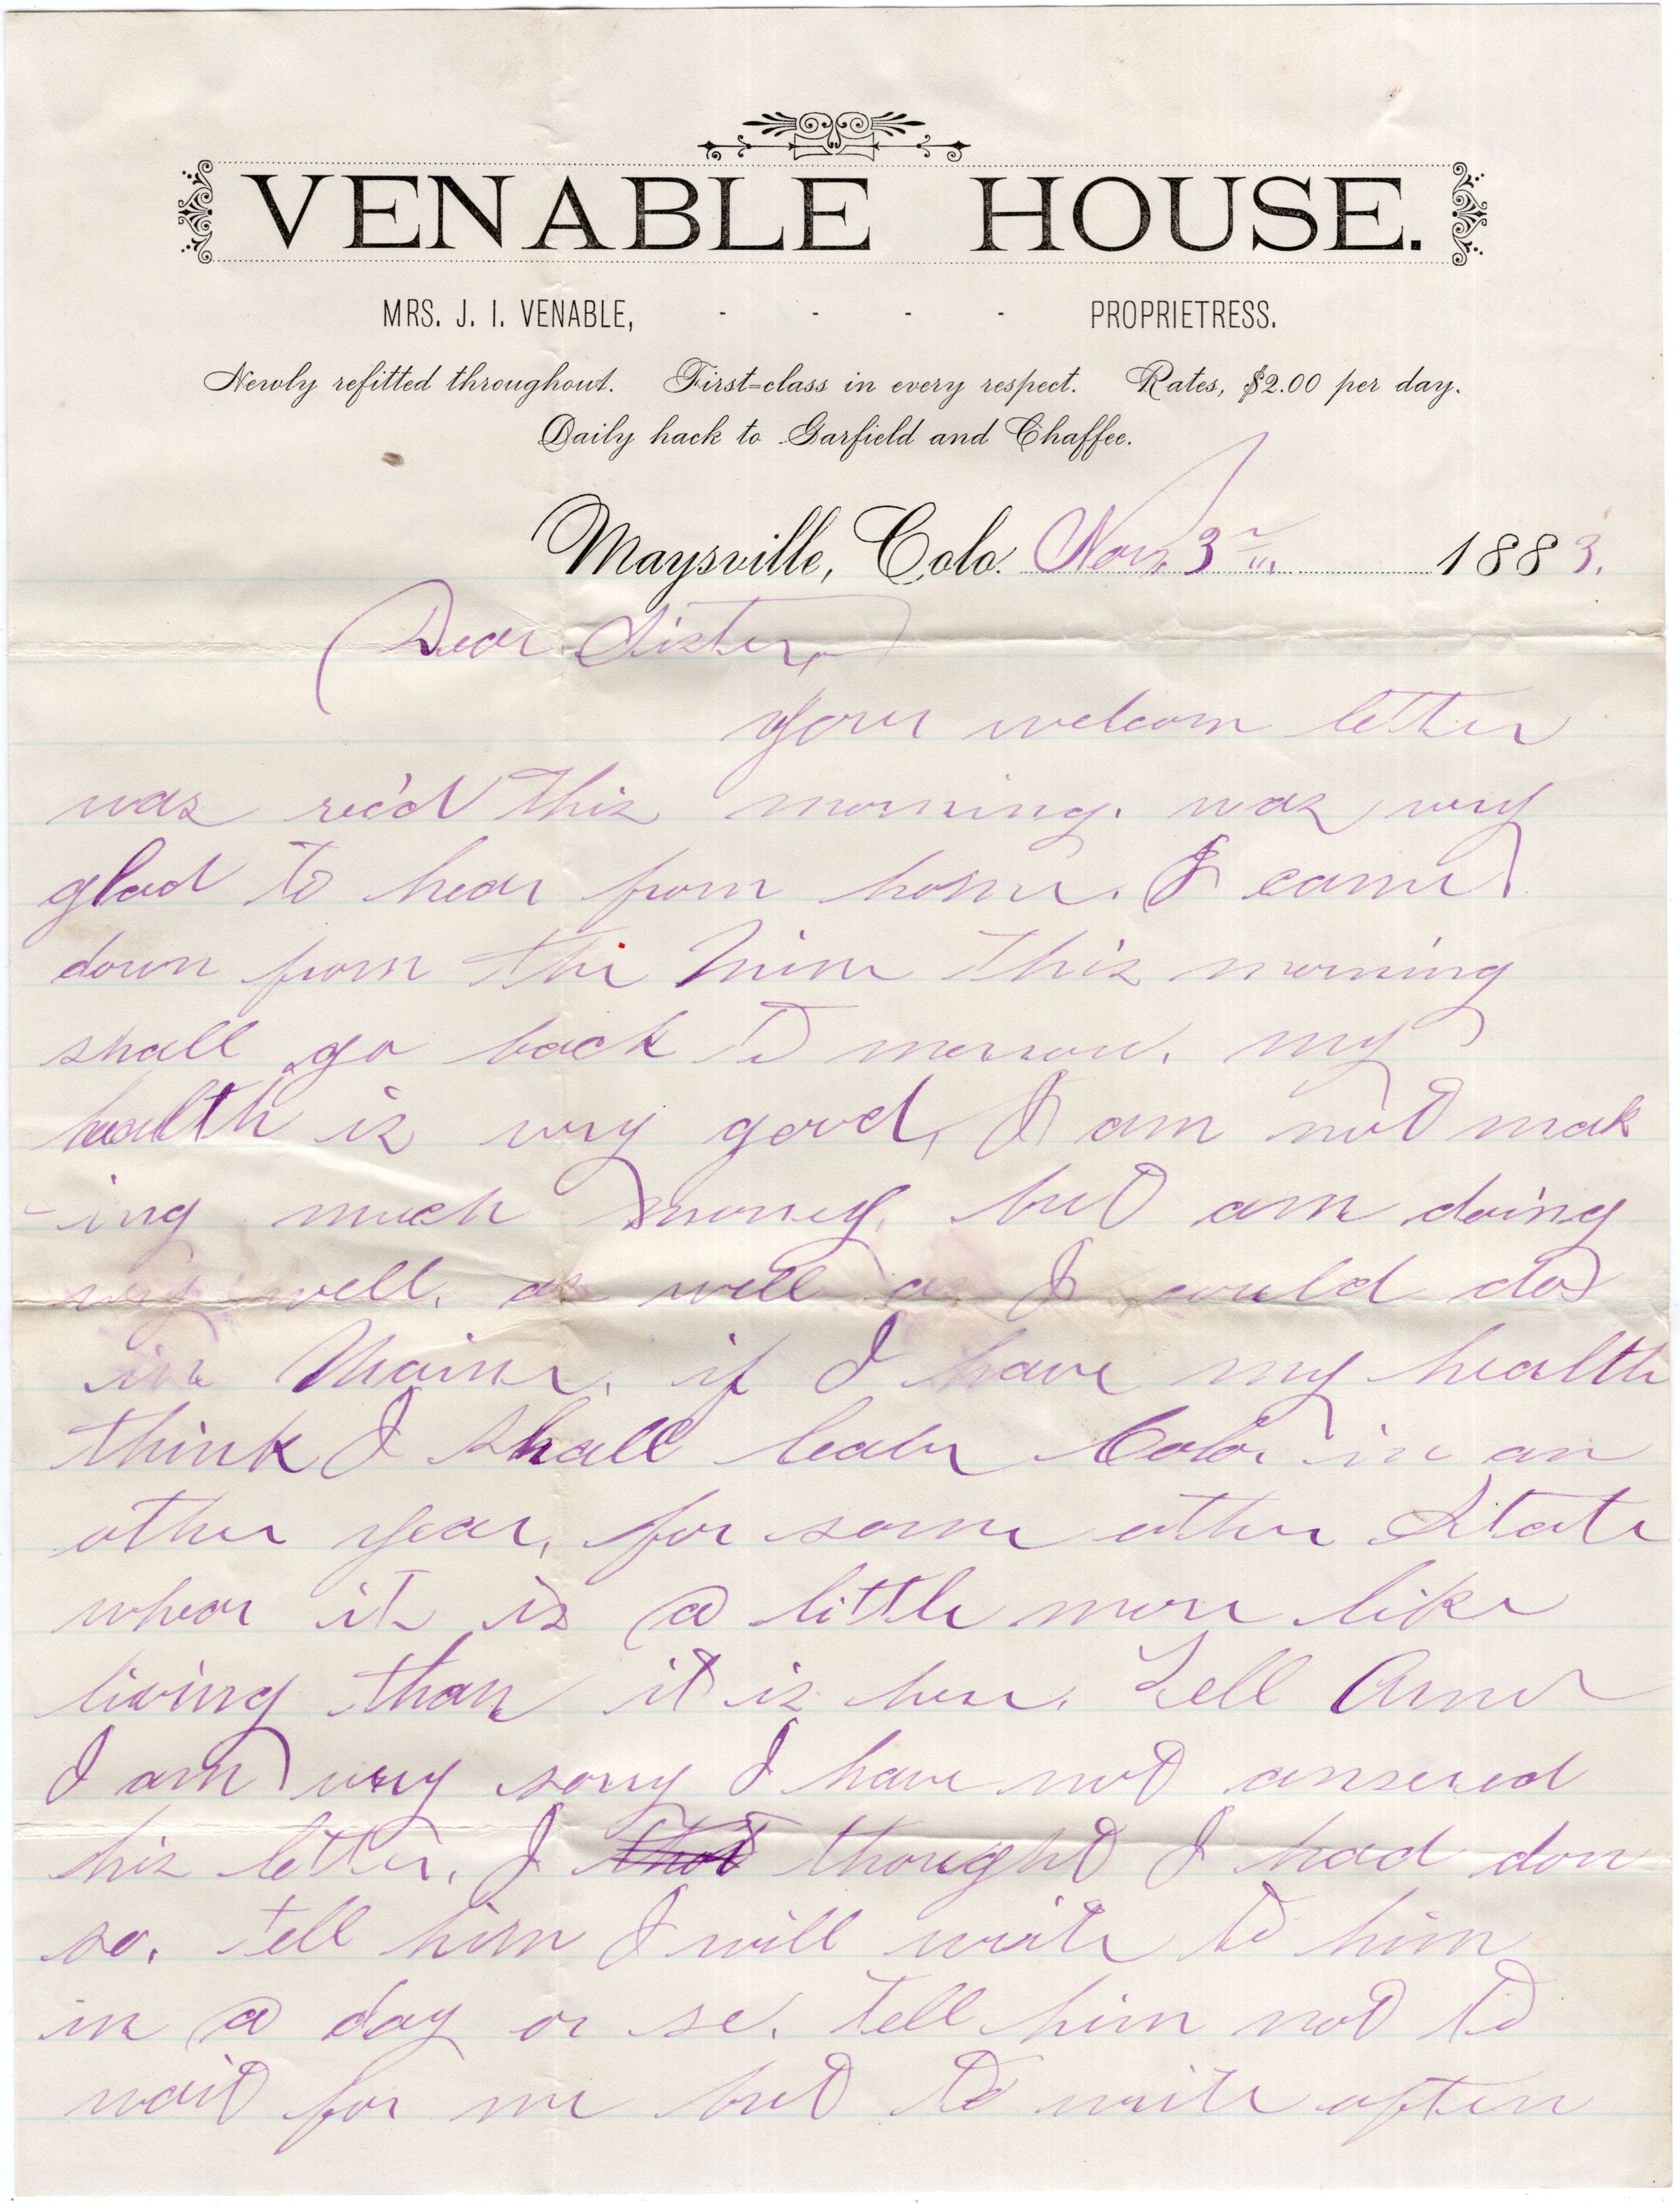 VENABLE HOUSE.
MRS. J. I. VENABLE, - - - - PROPRIETRESS.
Newly refitted throughout. First-class in every respect. Rates, $2.00 per day.
Daily hack to Garfield and Chaffee.
Maysville, Colo. Nov, 3 1883.
Dear Sister,
Your welcom letter
was rec'd this morning. was very
glad to hear from home. I came
down from the Mine this morning
shall go back to morrow. my
health is very good, I am not mak
-ing much money, but am doing
very well. as well as I could do
in Maine. if I have my health
think I shall leave Colo. in an
other year, for some other State
whear it is a little more like
living than it is here. Tell
I am very sorry I have not ansered
his letter. I that thought I had don
so. tell him I will write to him
in a day or so. tell him not to
wait for me but to write often